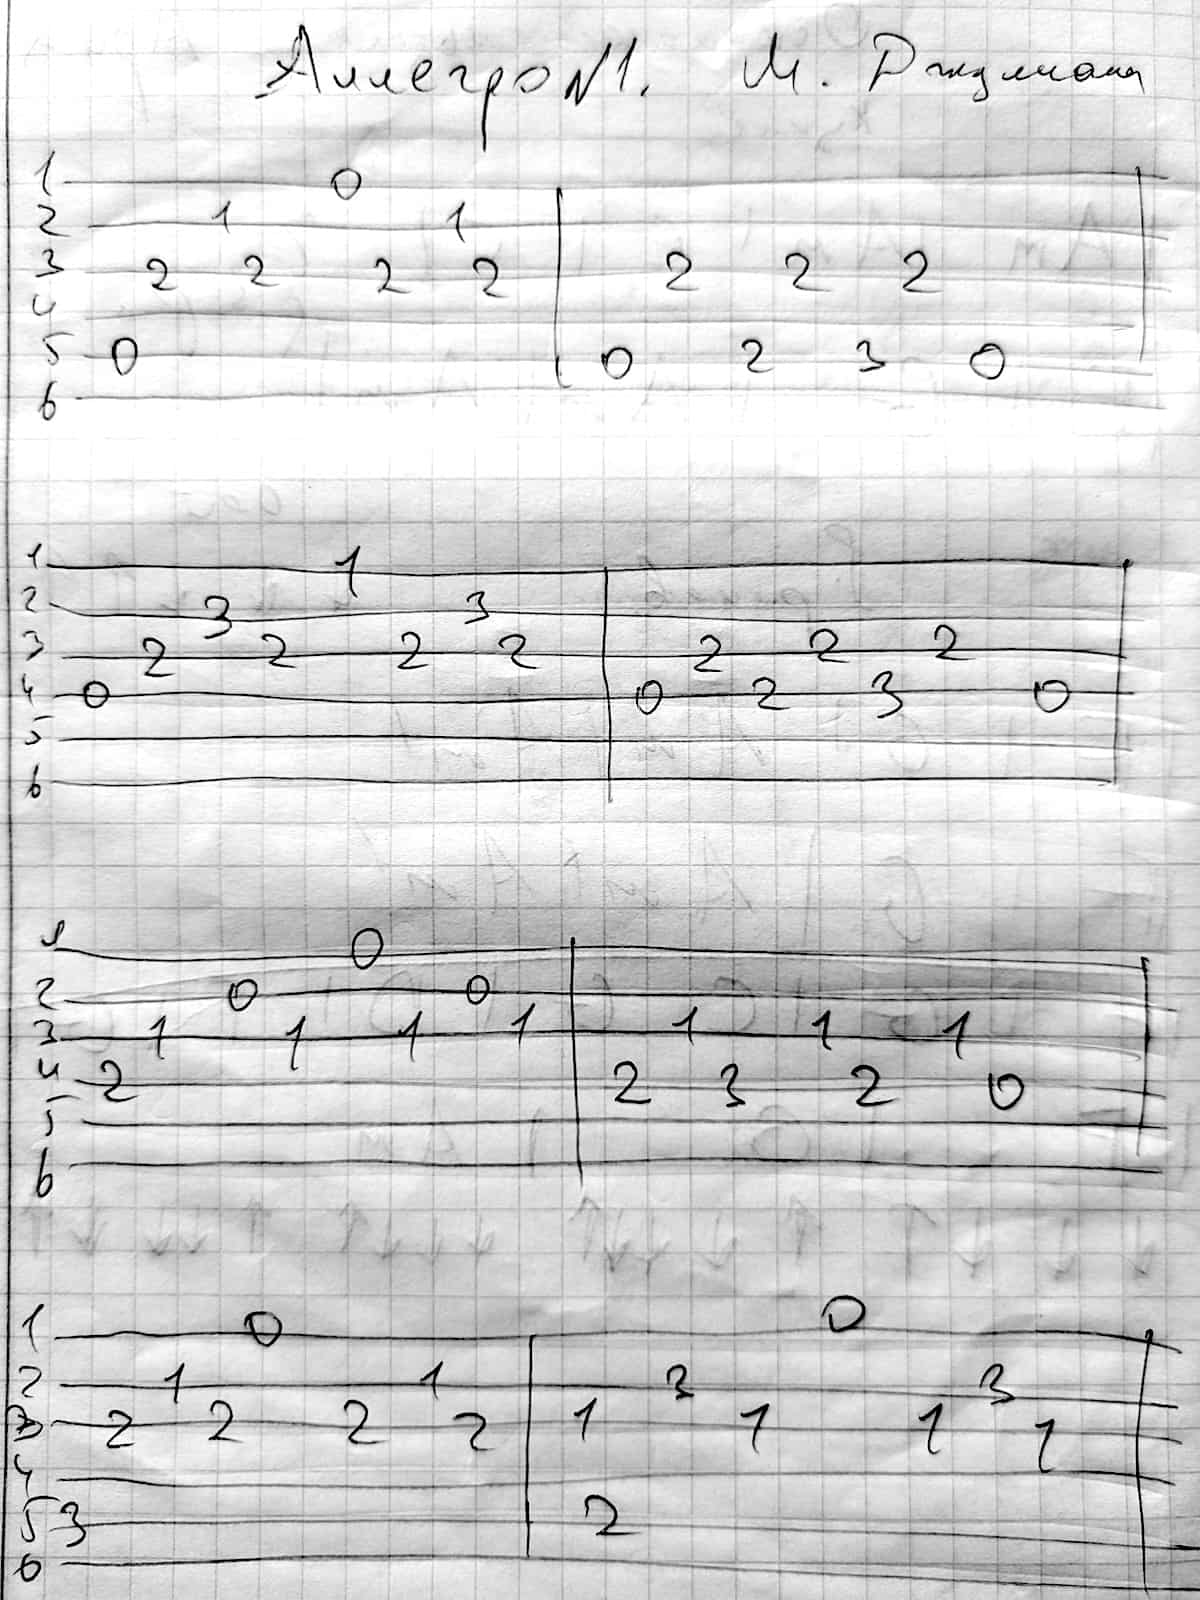 Аллегро №1. М. Джулиани
1 0
2 1 1
3 2 2 2 2 2 2 2
4
5 0 0 2 3 0
6
1 1
2 3 3
3 2 2 2 2 2 2 2
4 0 0 2 3 0
5
6
1 0
2 0 0
3 1 1 1 1 1 1 1
4 2 2 3 2 0
5
6
1 0 0
2 1 1 3 3
3 2 2 2 2 1 1 1 1
4
5 3 2
6